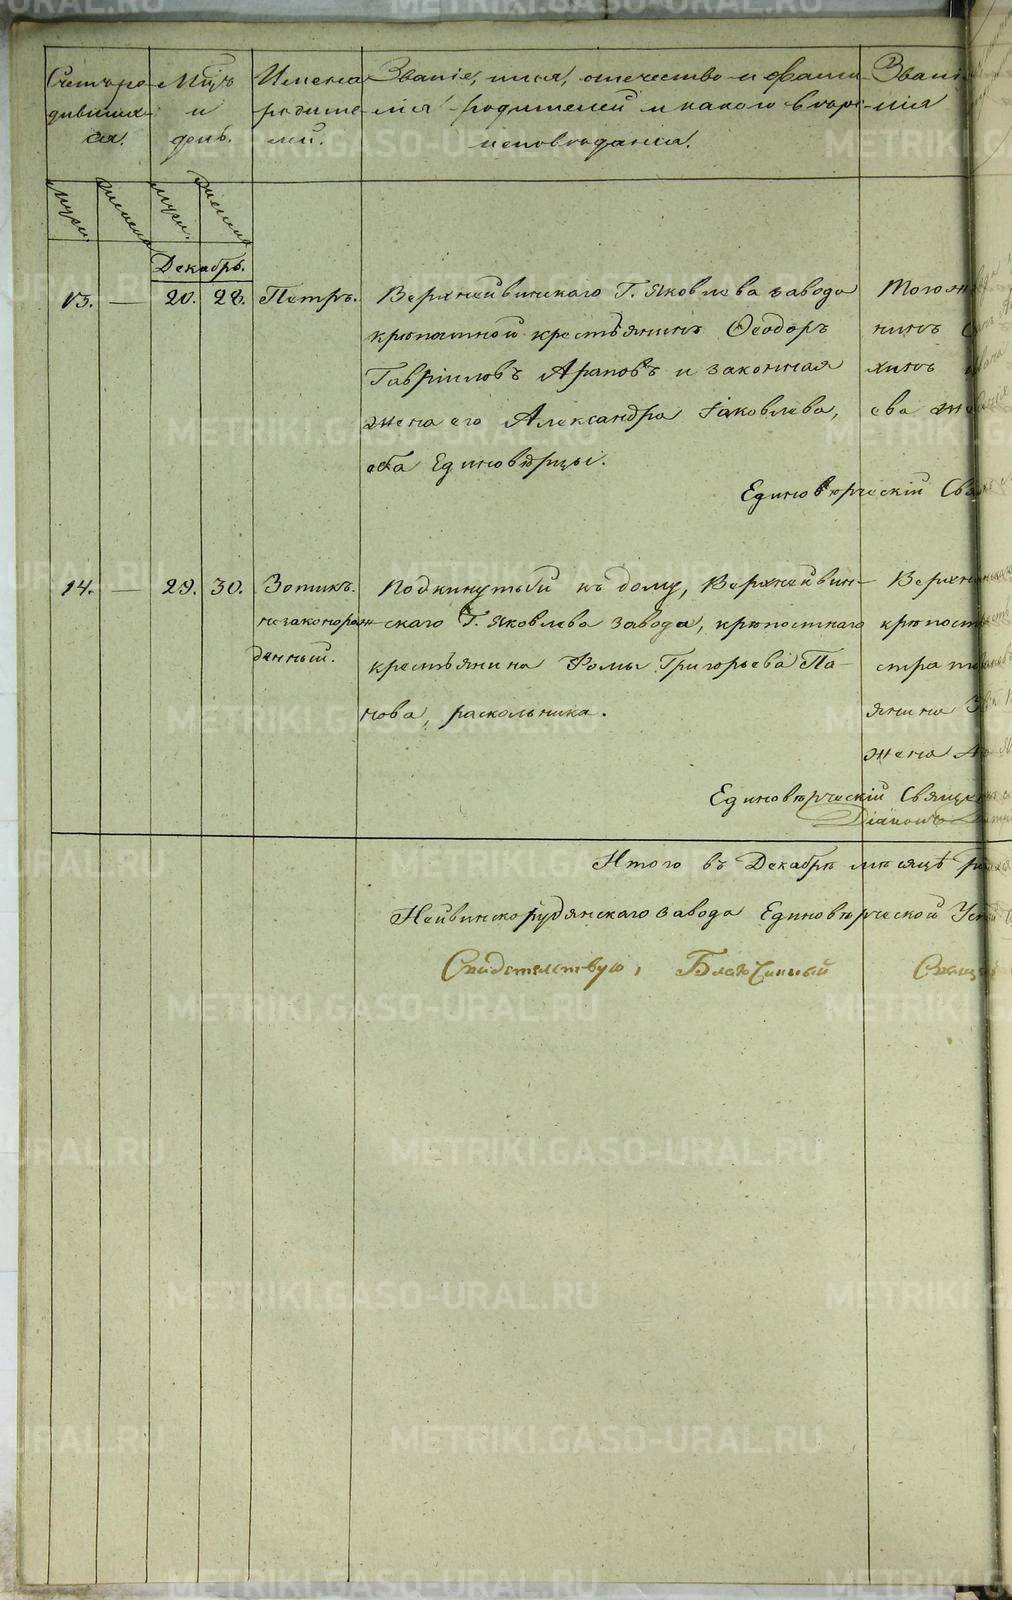 Счетъ ро-
дивших-
ся.
Мцъ
и
день.
Имена
родите-
лей.
Званіе, имя, отечество и фами-
лія родителей и какого вѣро-
исповѣданія.
Званіе
лія
Муж.
Женска
Муж.
Декабрь.
13. — 20. 28. Петръ.
Верхнейвинскаго Г. Яковлева завода
крѣпостной крестьянинъ Ѳеодоръ
Гавриловъ Араповъ и законная
жена его Александра Іаковлева,
оба Единовѣрцы.
Тогоже
нинъ
хинъ
ева
Единовѣрческій
14. — 29. 30. Зотикъ.
незаконорож-
денный.
Подкинутый къ дому, Верхнейвин-
скаго Г. Яковлева завода, крѣпостнаго
крестьянина Фомы Григорьева Па-
нова, раскольника.
Верхней
крѣпост
страт
янина
жена
Единовѣрческій Священ
Діаконъ
Итого въ Декабрѣ мѣсяцѣ
Нейвинскорудянскаго завода Единовѣрческой
Свидѣтельствую, Благочинный
Свящ
METRIKI.GASO-URAL.RU